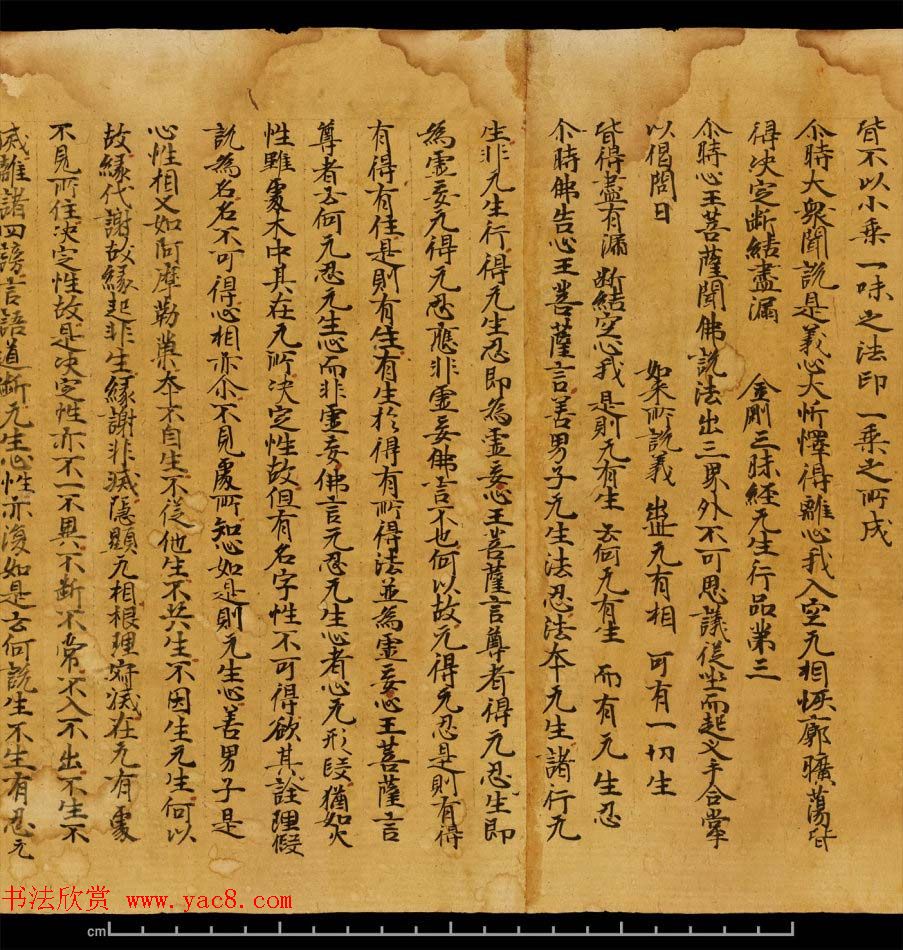 皆不以小乗一味之法印一乗之所成
尒時大衆聞說是義心大忻懌得離心我入空无相恢廓曠蕩皆
得决定斷結盡漏　金剛三昧経无生行品苐三
尒時心王菩薩聞佛說法出三界外不可思議従坐而起叉手合掌
以偈問曰　如来所說義　出世无有相　可有一切生
皆得盡有漏　斷結空心我　是則无有生　云何无有生　而有无生忍
尒時佛告心王菩薩言善男子无生法忍法夲无生諸行无
生非无生行得无生忍即為虛妄心王菩薩言尊者得无忍生即
為虛妄无得无忍應非虛妄佛言不也何以故无得无忍是則有得
有得有住是則有生有生扵得有所得法並為虛妄心王菩薩言
尊者云何无忍无生心而非虛妄佛言无忍无生心者心无形段猶如火
性雖處木中其在无所决定性故但有名字性不可得欲其詮理假
說為名名不可得心相亦尒不見處所知心如是則无生心善男子是
心性相又如阿摩勒菓夲不自生不従他生不共生不因生无生何以
故縁代謝故縁起非生縁謝非滅隱顯无相根理寂滅在无有處
不見所住决定性故是决定性亦不一不異不斷不常不入不出不生不
滅離諸四謗言語道斷无生心性亦復如是云何說生不生有忍无
书法欣赏 www.yac8.com
cm